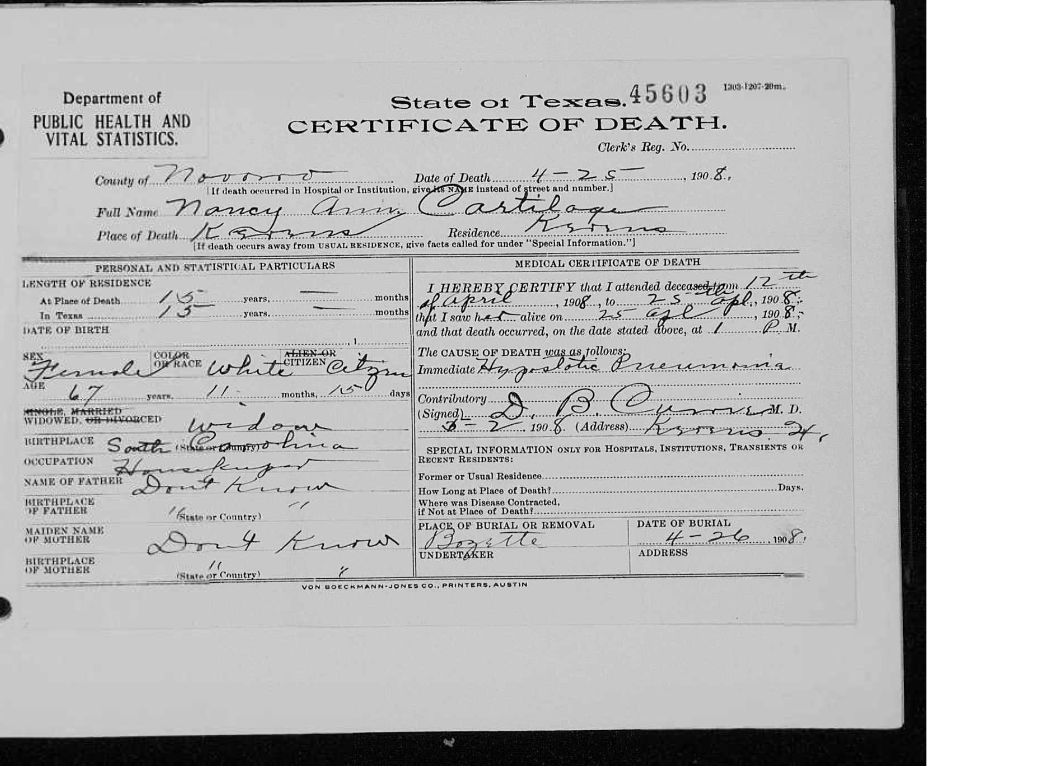 Department of
PUBLIC HEALTH AND
VITAL STATISTICS.
State of Texas. 45603 1303-1207-20m.
CERTIFICATE OF DEATH.
Clerk's Reg. No.
County of Navarro Date of Death 4-25, 1908.
[If death occurred in Hospital or Institution, give its NAME instead of street and number.]
Full Name Nancy Ann Cartilage
Place of Death Kerens Residence Kerens
[If death occurs away from USUAL RESIDENCE, give facts called for under "Special Information."]
PERSONAL AND STATISTICAL PARTICULARS
LENGTH OF RESIDENCE
At Place of Death 15 years, — months
In Texas 15 years, — months
DATE OF BIRTH
, 1
SEX Female COLOR OR RACE White ALIEN OR CITIZEN Citizen
AGE 67 years, 11 months, 15 days
SINGLE, MARRIED
WIDOWED, OR DIVORCED Widow
BIRTHPLACE South Carolina
(State or Country)
OCCUPATION Housekeeper
NAME OF FATHER Don't Know
BIRTHPLACE
OF FATHER " "
(State or Country)
MAIDEN NAME
OF MOTHER Don't Know
BIRTHPLACE
OF MOTHER " "
(State or Country)
MEDICAL CERTIFICATE OF DEATH
I HEREBY CERTIFY that I attended deceased from 12th
of April, 1908, to 25th Apl, 1908;
that I saw her alive on 25 Apl, 1908;
and that death occurred, on the date stated above, at 1 P. M.
The CAUSE OF DEATH was as follows:
Immediate Hypostatic Pneumonia
Contributory
(Signed) D. B. Currie M. D.
5-2, 1908. (Address) Kerens
SPECIAL INFORMATION ONLY FOR HOSPITALS, INSTITUTIONS, TRANSIENTS OR
RECENT RESIDENTS:
Former or Usual Residence
How Long at Place of Death? Days.
Where was Disease Contracted,
if Not at Place of Death?
PLACE OF BURIAL OR REMOVAL DATE OF BURIAL
Bazette 4-26, 1908.
UNDERTAKER ADDRESS
VON BOECKMANN-JONES CO., PRINTERS, AUSTIN